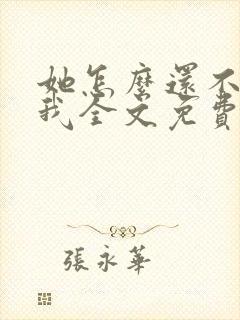 她怎麼還不
我全文免費
張永華